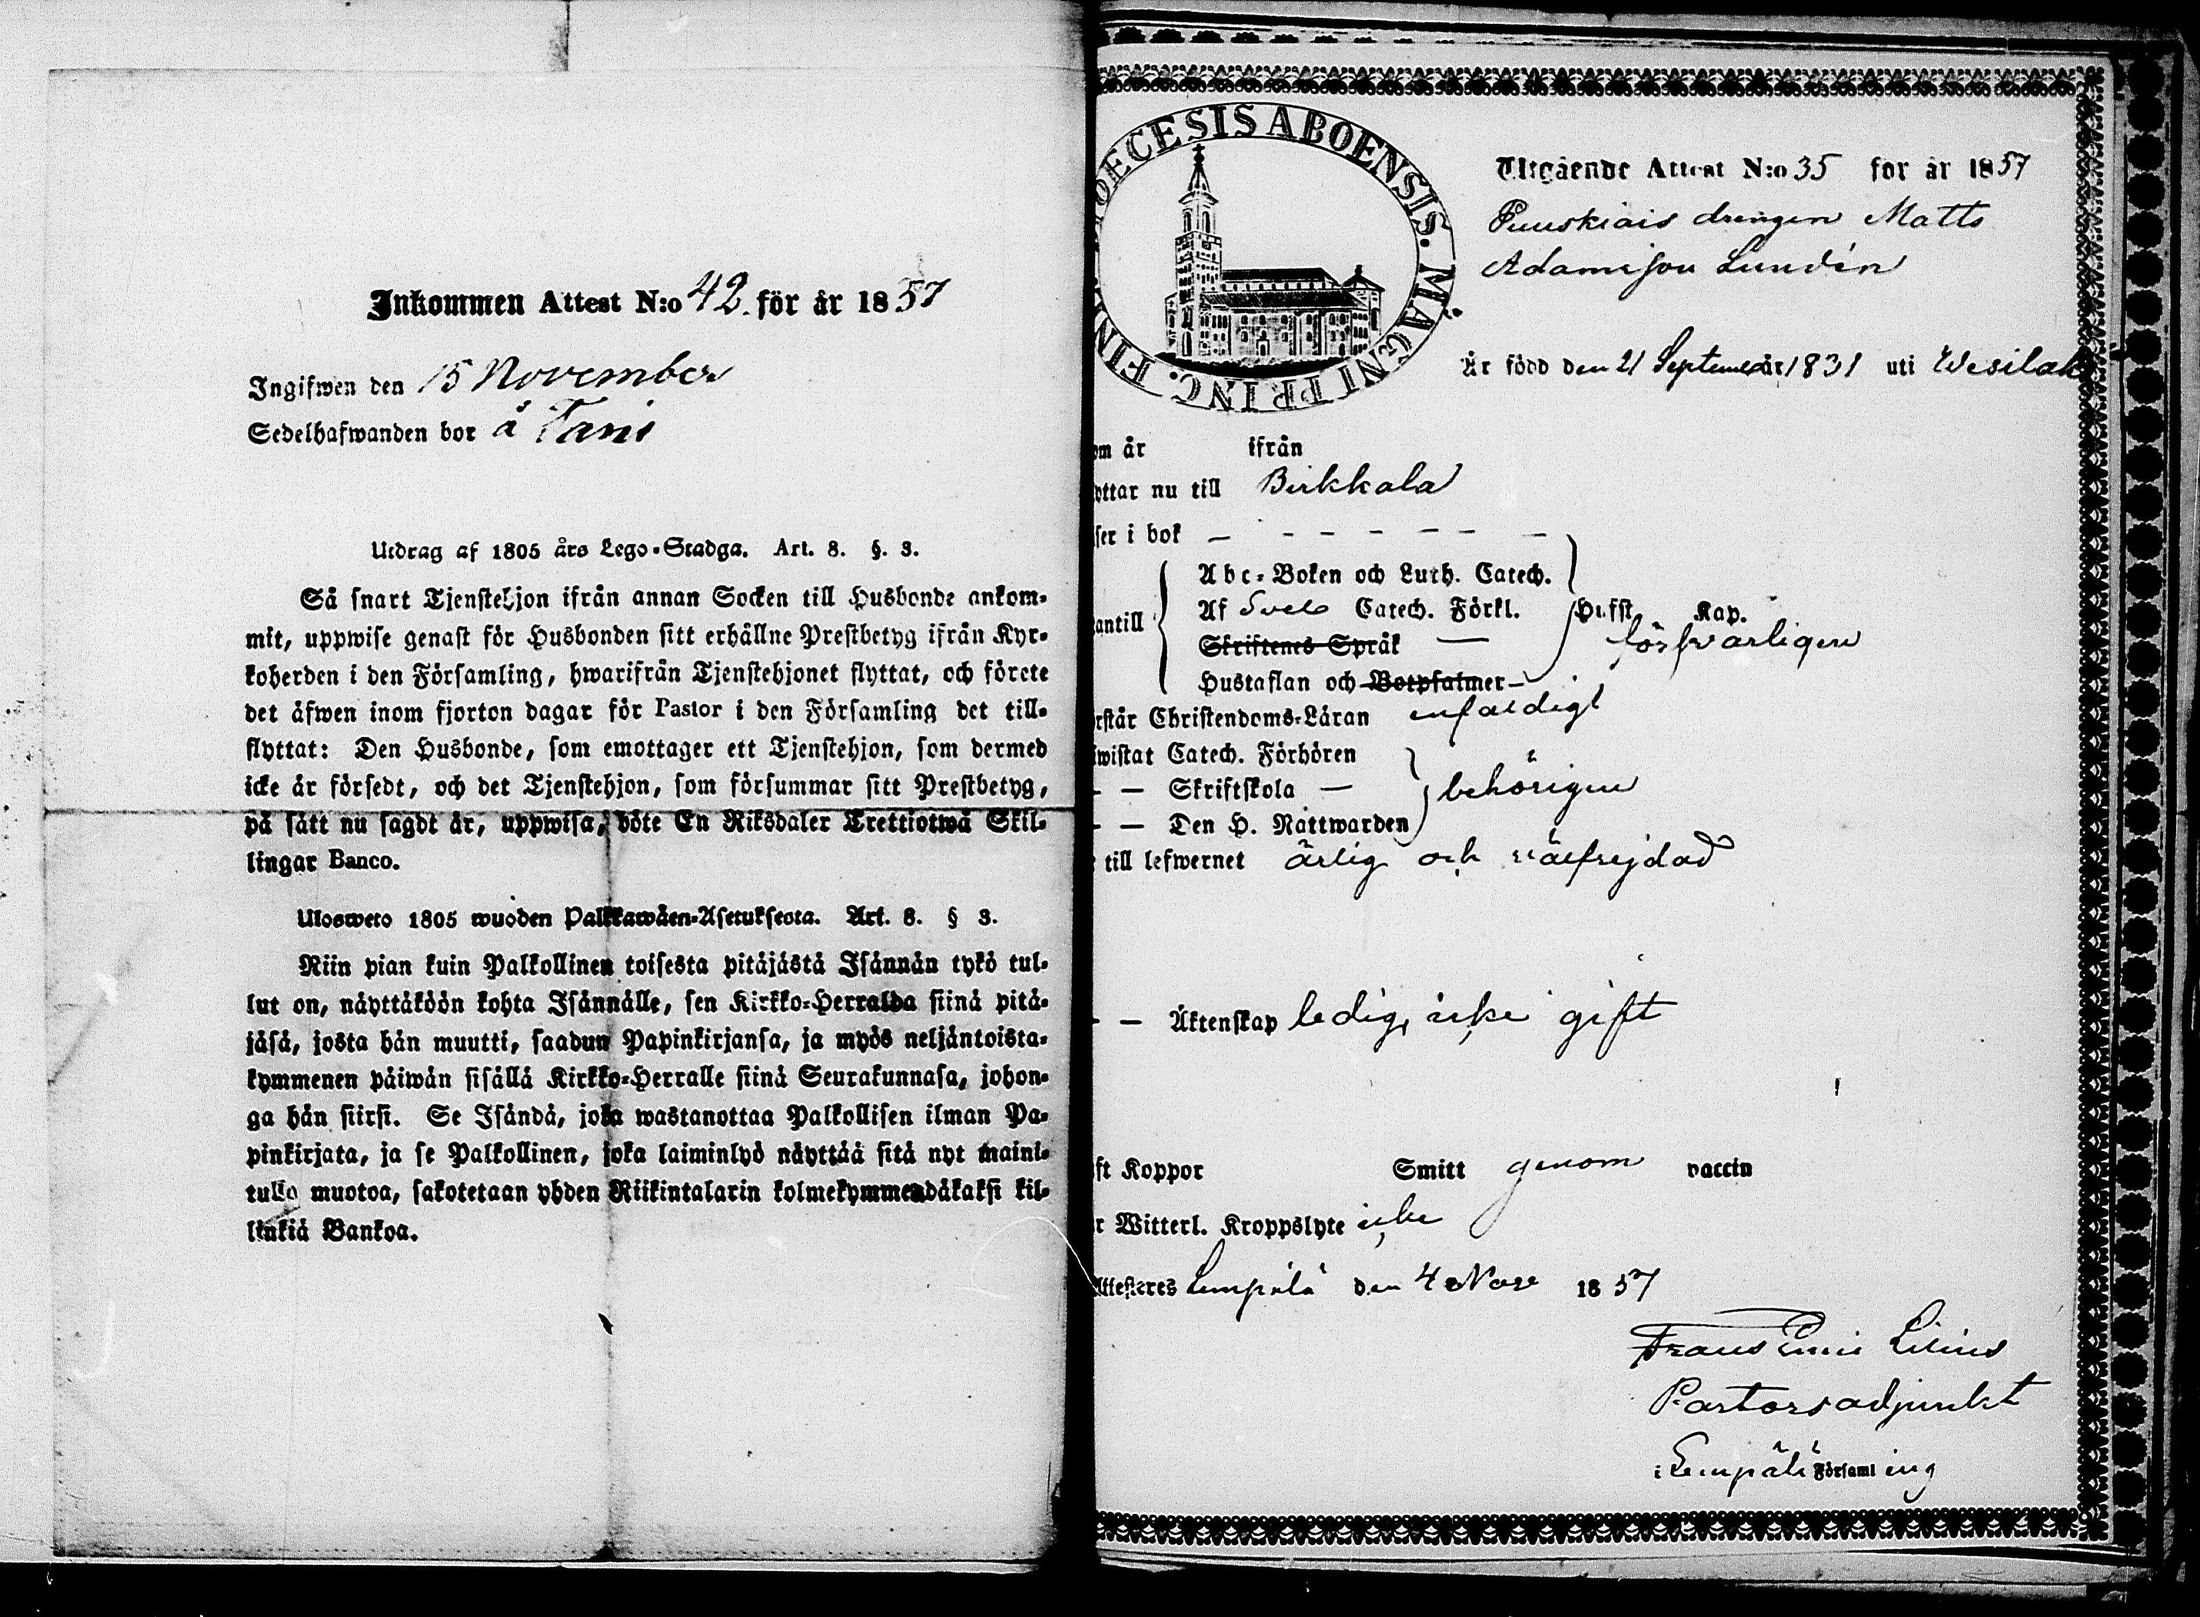 Inkommen Attest N:o 42. för år 1857
Ingifwen den 15 November
Sedelhafwanden bor å Tani
Utdrag af 1805 års Lego-Stadga. Art. 8. §. 3.
Så snart Tjenstehjon ifrån annan Socken till Husbonde ankom-
mit, uppwise genast för Husbonden sitt erhållne Prestbetyg ifrån Kyr-
koherden i den Församling, hwarifrån Tjenstehjonet flyttat, och förete
det äfwen inom fjorton dagar för Pastor i den Församling det till-
flyttat: Den Husbonde, som emottager ett Tjenstehjon, som dermed
icke är försedt, och det Tjenstehjon, som försummar sitt Prestbetyg,
på sätt nu sagdt är, uppwisa, böte En Riksdaler Trettiotwå Skil-
lingar Banco.
Ulosweto 1805 wuoden Palkkawäen-Asetuksesta. Art. 8. § 3.
Niin pian kuin Palkollinen toisesta pitäjästä Isännän tykö tul-
lut on, näyttäköön kohta Isännälle, sen Kirkko-Herralda siinä pitä-
jäsä, josta hän muutti, saadun Papinkirjansa, ja myös neljäntoista-
kymmenen päiwän sisällä Kirkko-Herralle siinä Seurakunnasa, johon-
ga hän siirsi. Se Isändä, joka wastanottaa Palkollisen ilman Pa-
pinkirjata, ja se Palkollinen, joka laiminlyö näyttää sitä nyt maini-
tulla muotoa, sakotetaan yhden Riikintalarin kolmekymmendäkaksi kil-
linkiä Bankoa.
DECESIS ABOENSIS. MAGNI PRINC. FIN
Utgående Attest N:o 35 för år 1857
drengen Matts
Adamsson Lundén
Är född den 21 September år 1831 uti Wesilaks
om år ifrån
yttar nu till Birkkala
ser i bok — — — — — — —
antill
Abc-Boken och Luth. Catech.
Af Sveb Catech. Förkl. Husst. Kap.
Skriftenes Språk — försvarligen
Hustaflan och Botpsalmer —
rstår Christendoms-Läran enfaldigt
wistat Catech. Förhören
— — Skriftskola — behörigen
— — Den H. Nattwarden
till lefwernet ärlig och välfrejdad
— — Äktenskap ledig, icke gift
ft Koppor Smitt genom vaccin
r Witterl. Kroppslyte icke
Attesteres Lempälä den 4 Nov 1857
Frans Emil Lilius
Pastorsadjunkt
i Lempälä Församling